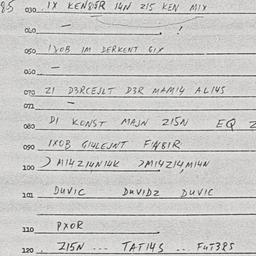 85
030 IX KEN8IR I4N 2I5 KEN MIX
040 — . !
050 IXOB IM DERKENT GIX
060 —
070 2I D3RCEJLT D3R MAMI4 ALI4S
071 —
DI KONST MAJN 2I5N EQ 2
080
090 IXOB GI4LEJNT FIN8IR
100 )MI4ZI4NI4K )MI4ZI4MI4N
101 DUVIC DUVIDZ DUVIC
110 PXOR
120 2I5N --- TATI4S .. FUT3RS